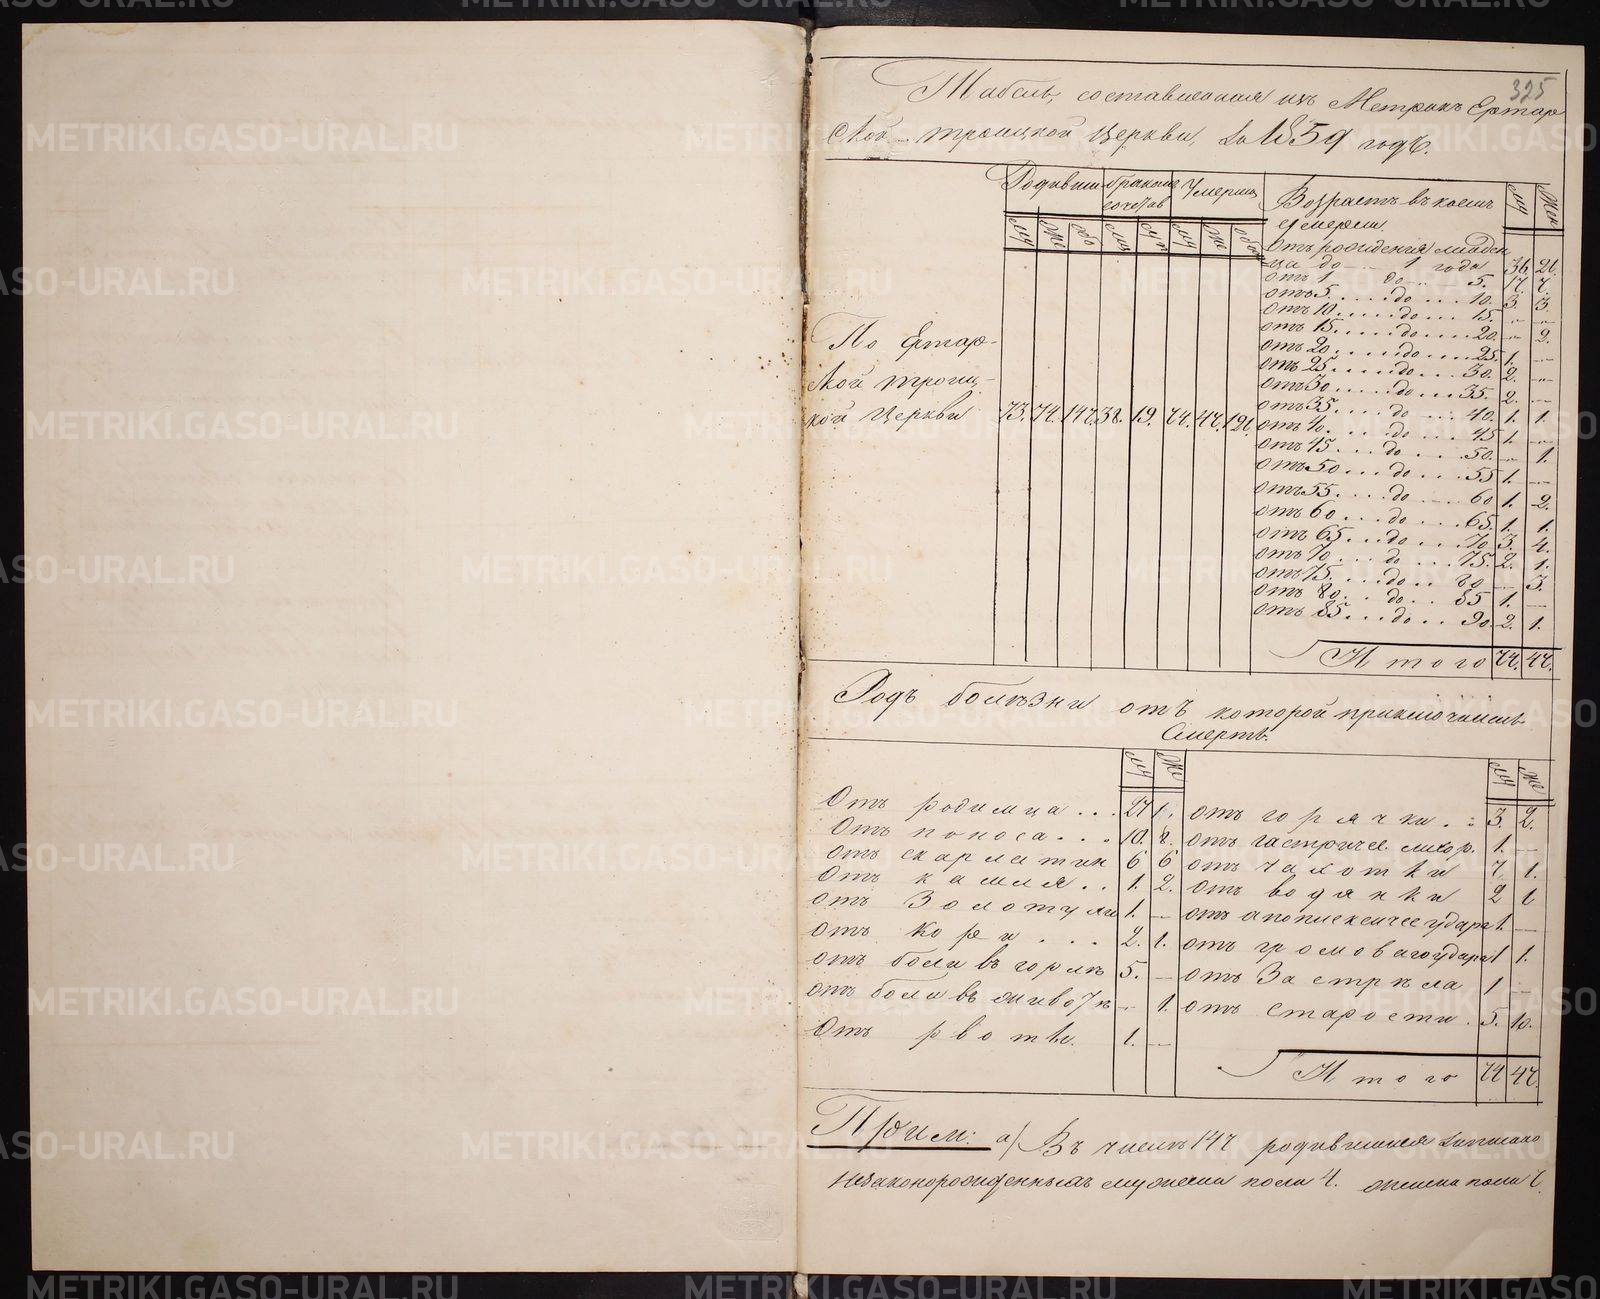 325
Табель, составленная изъ Метрикъ Ертар
ской троицкой Церкви, за 1859 годъ.
Родивши бракомъ сочетав Умерш Возрастъ въ коемъ умерли му Жен
му же обо му суп му же обо
Отъ рожденія младен
ца до 1 года 31. 21.
отъ 1 до 5. 17. 7.
отъ 5 до 10. 3. 3.
отъ 10 до 15. - -
отъ 15 до 20. - 2.
отъ 20 до 25 1. -
отъ 25 до 30. 2. -
отъ 30 до 35. 2. -
отъ 35 до 40. 1. 1.
отъ 40 до 45 1. -
отъ 45 до 50. - 1.
отъ 50 до 55 1. -
отъ 55 до 60 1. 2.
отъ 60 до 65. 1. 1.
отъ 65 до 70 3. 4.
отъ 70 до 75. 2. 1.
отъ 75 до 80 - 3.
отъ 80 до 85 1. -
отъ 85 до 90. 2. 1.
По Ертар-
ской троиц-
кой Церкви 73. 74. 147. 38. 19. 74. 47. 121.
Итого 74. 47.
Родъ болѣзни отъ которой приключилась
Смерть.
му же му же
Отъ родимца 27 1. отъ горячки 3. 2.
Отъ поноса 10. 8. отъ гастричес. лихор. 1. -
отъ скарлатин 6 6 отъ чахотки 7 1.
Отъ кашля 1. 2. отъ водянки 2 1
отъ Золотухи 1. - отъ апоплексичес удара 1. -
отъ Кори 2. 1. отъ громоваго удара 1 1.
отъ боли въ горлѣ 5. - отъ Застрѣла 1 -
отъ боли въ животѣ - 1. отъ старости 5. 10.
Отъ рвоты 1. -
Итого 74 47.
Прим: а) Въ числѣ 147 родившихся
незаконорожденныхъ мужеска пола 4. женска пола
METRIKI.GASO-URAL.RU